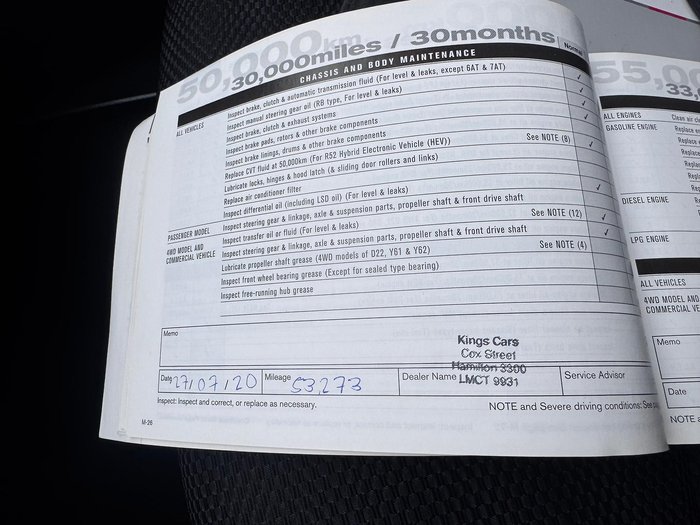 50,000km
30,000miles / 30months
CHASSIS AND BODY MAINTENANCE
Normal
ALL VEHICLES
Inspect brake, clutch & automatic transmission fluid (For level & leaks, except 6AT & 7AT) ✓
Inspect manual steering gear oil (RB type, For level & leaks) ✓
Inspect brake, clutch & exhaust systems ✓
Inspect brake pads, rotors & other brake components ✓
Inspect brake linings, drums & other brake components
Replace CVT fluid at 50,000km (For R52 Hybrid Electronic Vehicle (HEV)) See NOTE (8) ✓
Lubricate locks, hinges & hood latch (& sliding door rollers and links)
Replace air conditioner filter
Inspect differential oil (including LSD oil) (For level & leaks) ✓
PASSENGER MODEL
Inspect steering gear & linkage, axle & suspension parts, propeller shaft & front drive shaft
4WD MODEL AND
COMMERCIAL VEHICLE
Inspect transfer oil or fluid (For level & leaks) See NOTE (12) ✓
Inspect steering gear & linkage, axle & suspension parts, propeller shaft & front drive shaft ✓
Lubricate propeller shaft grease (4WD models of D22, Y61 & Y62) See NOTE (4)
Inspect front wheel bearing grease (Except for sealed type bearing)
Inspect free-running hub grease
Memo
Kings Cars
Cox Street
Hamilton 3300
LMCT 9931
Date 27/07/20
Mileage 53,273
Dealer Name
Service Advisor
Inspect: Inspect and correct, or replace as necessary.
NOTE and Severe driving conditions: See
M-26
55,0
33,
ALL ENGINES
Clean air cl
GASOLINE ENGINE
Replace
Replace
Replace
Replace
DIESEL ENGINE
Replace
Replace
LPG ENGINE
ALL VEHICLES
4WD MODEL AND
COMMERCIAL VE
Memo
Date
NOTE a